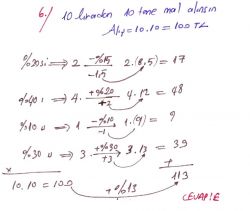 6./ 10 liradan 10 tane mal alınsın
Alış = 10.10 = 100 TL
%20si ⇒ 2 -%15 -1.5 2.(8,5) = 17
%40ı ⇒ 4. +%20 +2 4.12 = 48
%10u ⇒ 1 -%10 -1 1.(9) = 9
%30u ⇒ 3. +%30 +3 3.13 = 39
x +
10.10 = 100 +%13 113
CEVAP: E